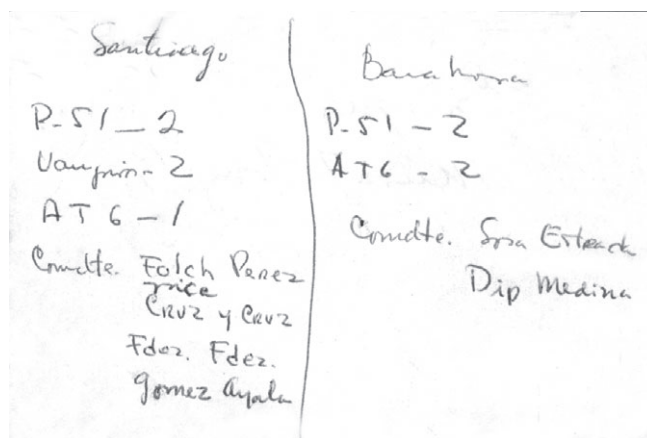 Santiago
P-51 - 2
Vampiro - 2
AT6 - 1
Comdte. Folch Perez
Cruz y Cruz
Fdez. Fdez.
Gomez Ayala
Barahona
P-51 - 2
AT6 - 2
Comdte. Sosa
Dip Medina